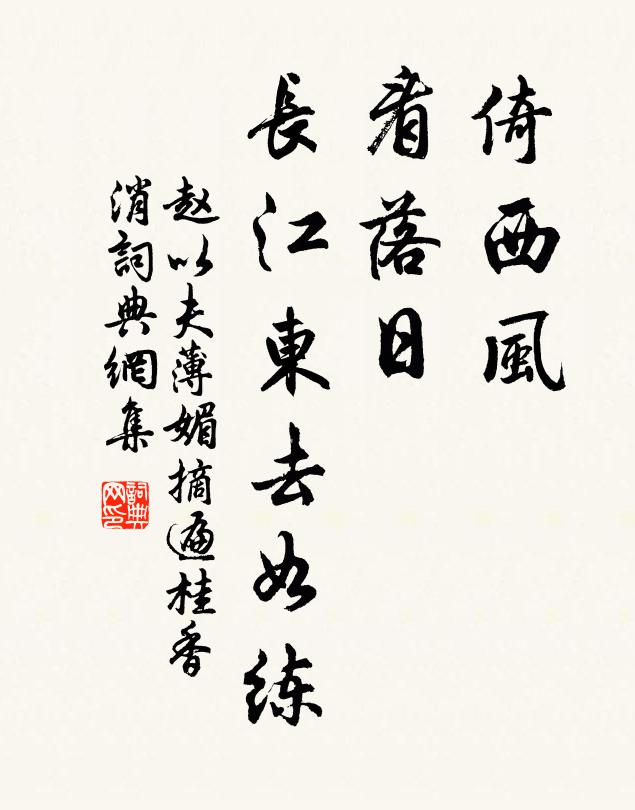 倚西風
看落日
長江東去如练
赵以夫薄媚摘遍桂香
消詞典網集
詞典网印